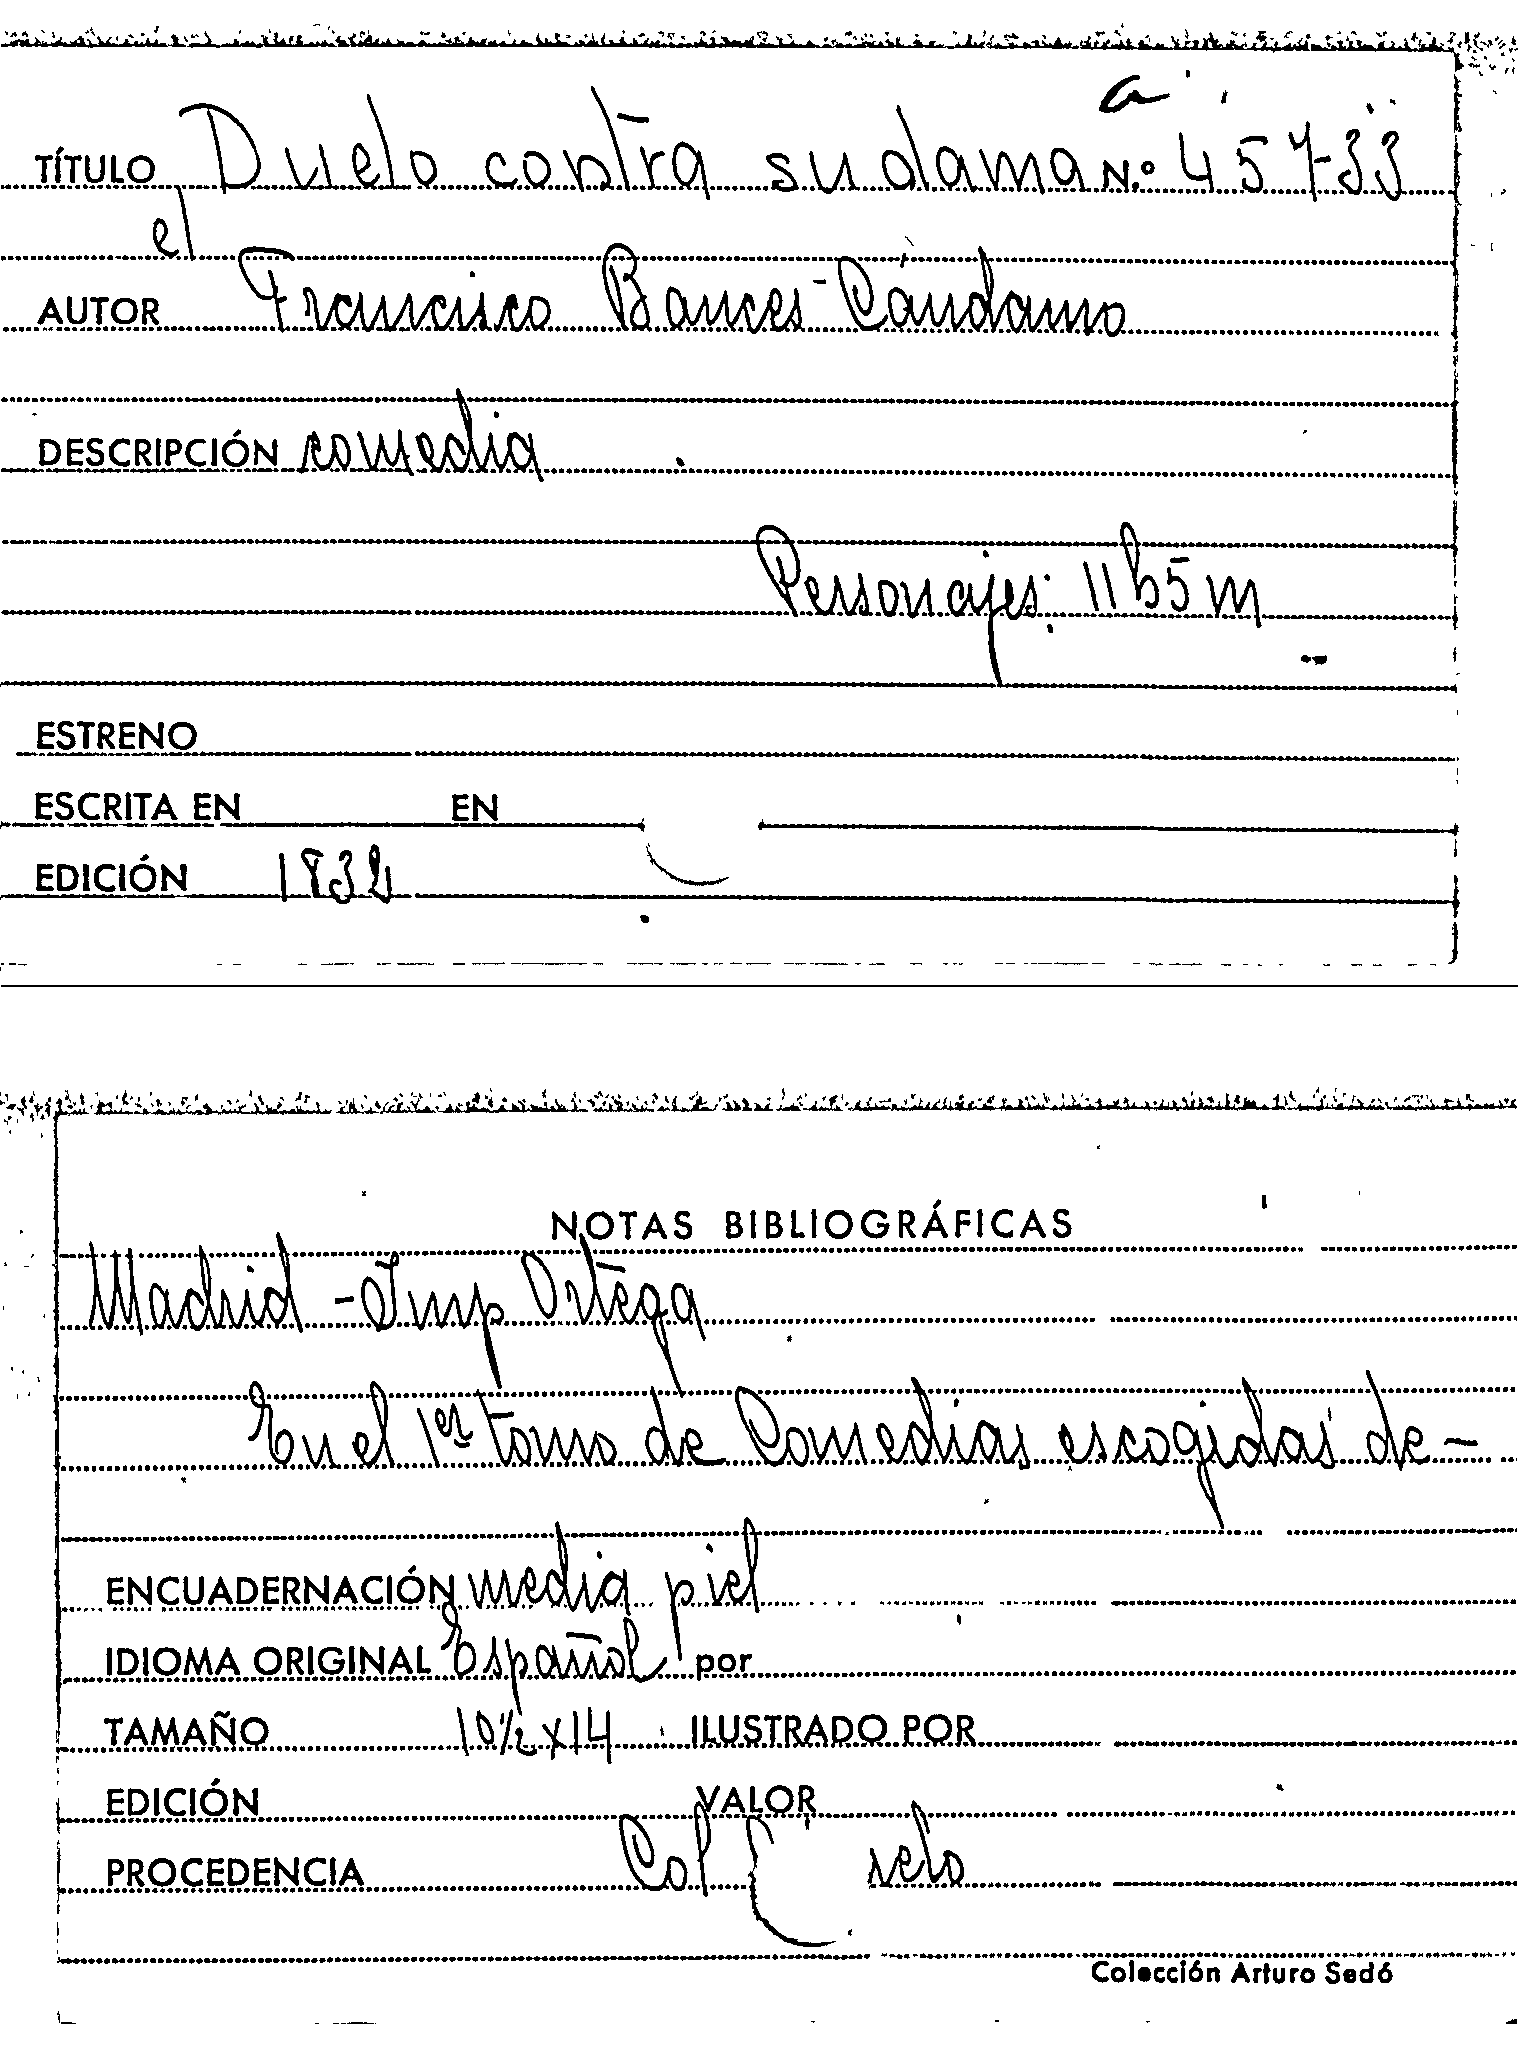 a
TÍTULO Duelo contra su dama N.º 45733
el
AUTOR Francisco Bances-Cándamo
DESCRIPCIÓN comedia
Personajes: 11 h 5 m
ESTRENO
ESCRITA EN EN
EDICIÓN 1832
NOTAS BIBLIOGRÁFICAS
Madrid - Imp Ortega
En el 1er tomo de Comedias escogidas de -
ENCUADERNACIÓN media piel
IDIOMA ORIGINAL Español por
TAMAÑO 10½ x 14 ILUSTRADO POR
EDICIÓN VALOR
PROCEDENCIA Col
Colección Arturo Sedó